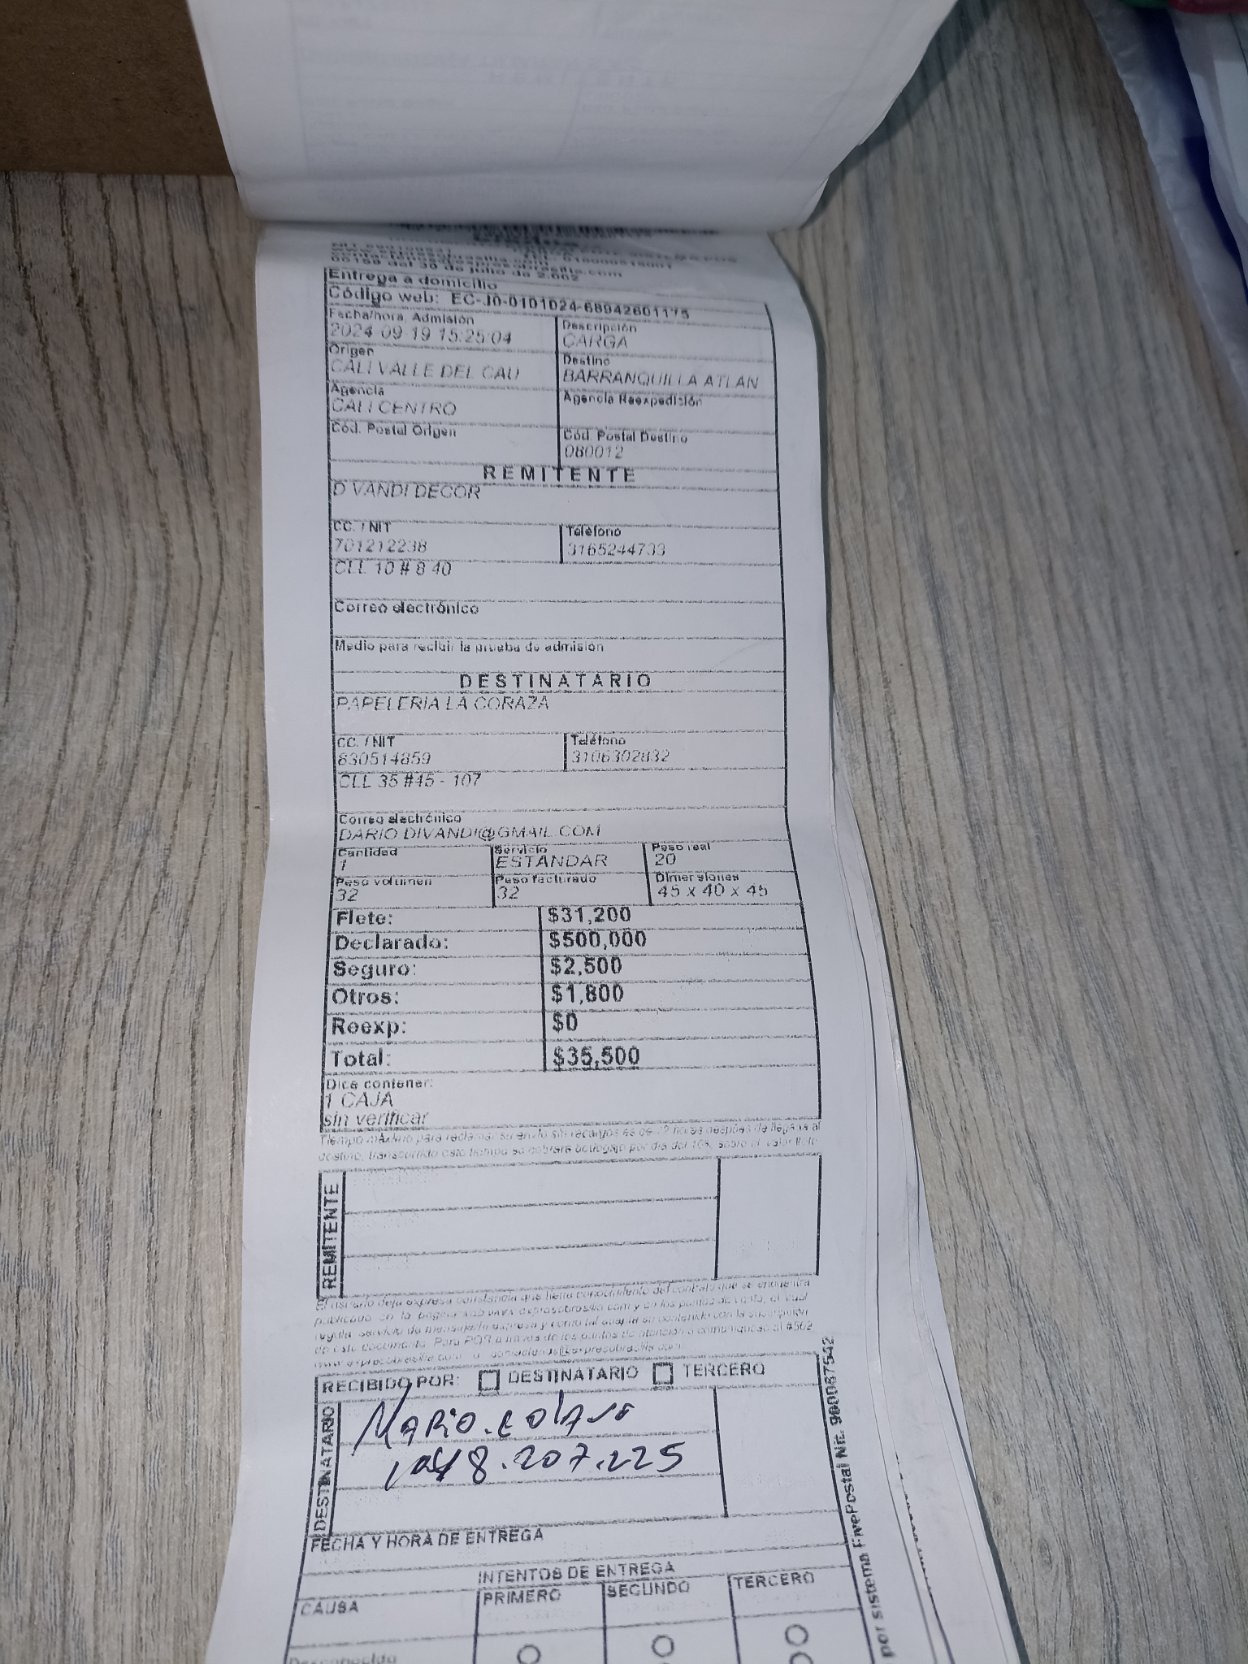 Entrega a domicilio
Código web: EC-J0-0101024-68942601175
Fecha/hora Admisión
2024-09-19 15:25:04
Descripción
CARGA
Origen
CALI VALLE DEL CAU
Destino
BARRANQUILLA ATLAN
Agencia
CALI CENTRO
Agencia Reexpedición
Cód. Postal Origen
Cód. Postal Destino
080012
REMITENTE
D VANDI DECOR
CC. / NIT
701212238
Teléfono
3165244733
CLL 10 # 8 40
Correo electrónico
Medio para recibir la prueba de admisión
DESTINATARIO
PAPELERIA LA CORAZA
CC. / NIT
830514859
Teléfono
3106302832
CLL 35 #45 - 107
Correo electrónico
DARIO.DIVANDI@GMAIL.COM
Cantidad
1
Servicio
ESTANDAR
Peso real
20
Peso volumen
32
Peso facturado
32
Dimensiones
45 x 40 x 45
Flete: $31,200
Declarado: $500,000
Seguro: $2,500
Otros: $1,800
Reexp: $0
Total: $35,500
Dice contener:
1 CAJA
sin verificar
REMITENTE
RECIBIDO POR: DESTINATARIO TERCERO
DESTINATARIO
MARIO
8.207.225
FECHA Y HORA DE ENTREGA
INTENTOS DE ENTREGA
CAUSA PRIMERO SEGUNDO TERCERO
Desconocido
por sistema FivePostal Nit. 900087542